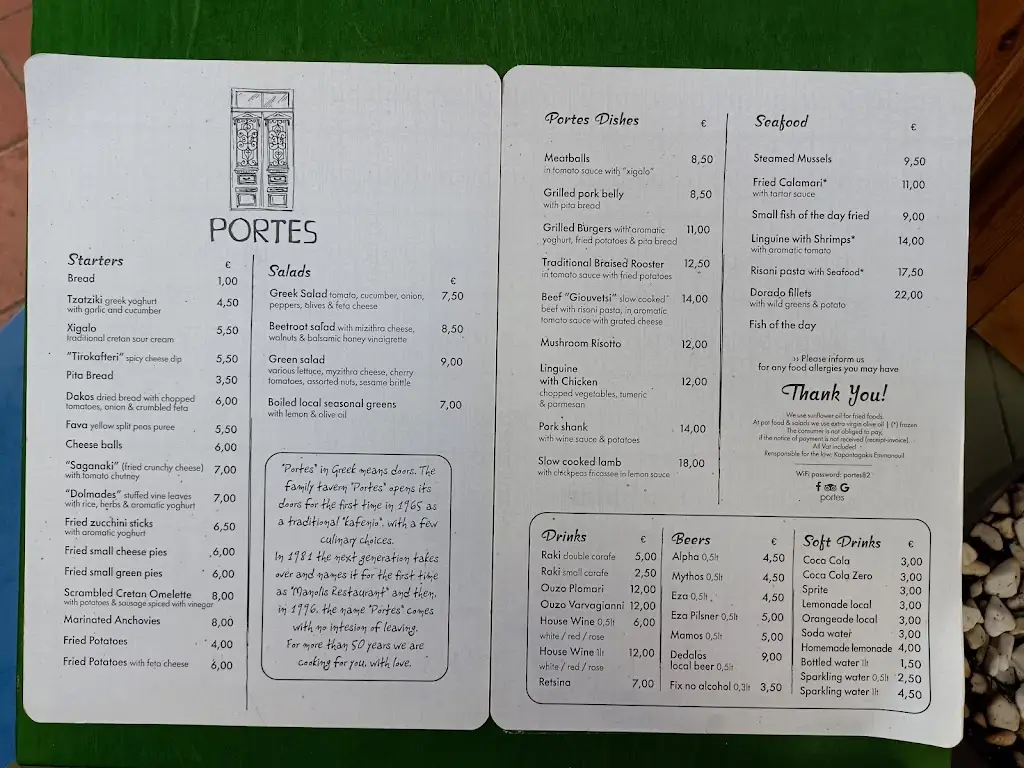 PORTES
Starters €
Bread 1,00
Tzatziki greek yoghurt 4,50
with garlic and cucumber
Xigalo 5,50
traditional cretan sour cream
"Tirokafteri" spicy cheese dip 5,50
Pita Bread 3,50
Dakos dried bread with chopped 6,00
tomatoes, onion & crumbled feta
Fava yellow split peas puree 5,50
Cheese balls 6,00
"Saganaki" (fried crunchy cheese) 7,00
with tomato chutney
"Dolmades" stuffed vine leaves 7,00
with rice, herbs & aromatic yoghurt
Fried zucchini sticks 6,50
with aromatic yoghurt
Fried small cheese pies 6,00
Fried small green pies 6,00
Scrambled Cretan Omelette 8,00
with potatoes & sausage spiced with vinegar
Marinated Anchovies 8,00
Fried Potatoes 4,00
Fried Potatoes with feta cheese 6,00
Salads €
Greek Salad tomato, cucumber, onion, 7,50
peppers, olives & feta cheese
Beetroot salad with mizithra cheese, 8,50
walnuts & balsamic honey vinaigrette
Green salad 9,00
various lettuce, myzithra cheese, cherry
tomatoes, assorted nuts, sesame brittle
Boiled local seasonal greens 7,00
with lemon & olive oil
"Portes" in Greek means doors. The
family tavern "Portes" opens its
doors for the first time in 1965 as
a traditional "kafenio", with a few
culinary choices.
In 1981 the next generation takes
over and names it for the first time
as "Manolis Restaurant" and then,
in 1996, the name "Portes" comes
with no intesion of leaving.
For more than 50 years we are
cooking for you, with love.
Portes Dishes €
Meatballs 8,50
in tomato sauce with "xigalo"
Grilled pork belly 8,50
with pita bread
Grilled Burgers with aromatic 11,00
yoghurt, fried potatoes & pita bread
Traditional Braised Rooster 12,50
in tomato sauce with fried potatoes
Beef "Giouvetsi" slow cooked 14,00
beef with risoni pasta, in aromatic
tomato sauce with grated cheese
Mushroom Risotto 12,00
Linguine
with Chicken 12,00
chopped vegetables, turmeric
& parmesan
Pork shank 14,00
with wine sauce & potatoes
Slow cooked lamb 18,00
with chickpeas fricassee in lemon sauce
Seafood €
Steamed Mussels 9,50
Fried Calamari* 11,00
with tartar sauce
Small fish of the day fried 9,00
Linguine with Shrimps* 14,00
with aromatic tomato
Risoni pasta with Seafood* 17,50
Dorado fillets 22,00
with wild greens & potato
Fish of the day
›› Please inform us
for any food allergies you may have
Thank You!
We use sunflower oil for fried foods.
At pot food & salads we use extra virgin olive oil | (*) frozen
The consumer is not obliged to pay,
if the notice of payment is not received (receipt-invoice).
All Vat included
Responsible for the law: Kapantagakis Emmanouil
WiFi password: portes82
f G
portes
Drinks €
Raki double carafe 5,00
Raki small carafe 2,50
Ouzo Plomari 12,00
Ouzo Varvagianni 12,00
House Wine 0,5lt 6,00
white / red / rose
House Wine 1lt 12,00
white / red / rose
Retsina 7,00
Beers €
Alpha 0,5lt 4,50
Mythos 0,5lt 4,50
Eza 0,5lt 4,50
Eza Pilsner 0,5lt 5,00
Mamos 0,5lt 5,00
Dedalos 9,00
local beer 0,5lt
Fix no alcohol 0,3lt 3,50
Soft Drinks €
Coca Cola 3,00
Coca Cola Zero 3,00
Sprite 3,00
Lemonade local 3,00
Orangeade local 3,00
Soda water 3,00
Homemade lemonade 4,00
Bottled water 1lt 1,50
Sparkling water 0,5lt 2,50
Sparkling water 1lt 4,50